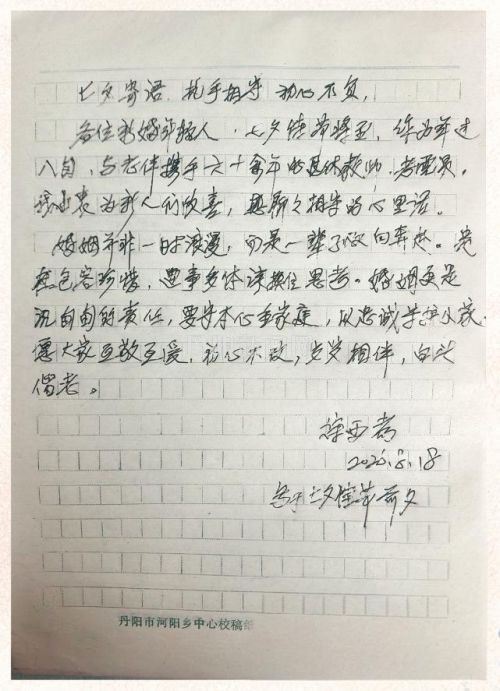 七夕寄语：执手相守 初心不负，
各位新婚年轻人，七夕佳节将至，作为年过
八旬，与老伴携手六十余年的退休教师、老党员，
我由衷为新人们欣喜，想聊聊相守的心里话。
婚姻并非一时浪漫，而是一辈子双向奔赴。贵
在包容珍惜，遇事多体谅换位思考。婚姻更是
沉甸甸的责任，要守本心重家庭，以忠诚守护小家。
愿大家互敬互爱，初心不改，岁岁相伴，白头
偕老。
2026.8.18
写于七夕佳节前夕
丹阳市河阳乡中心校稿纸